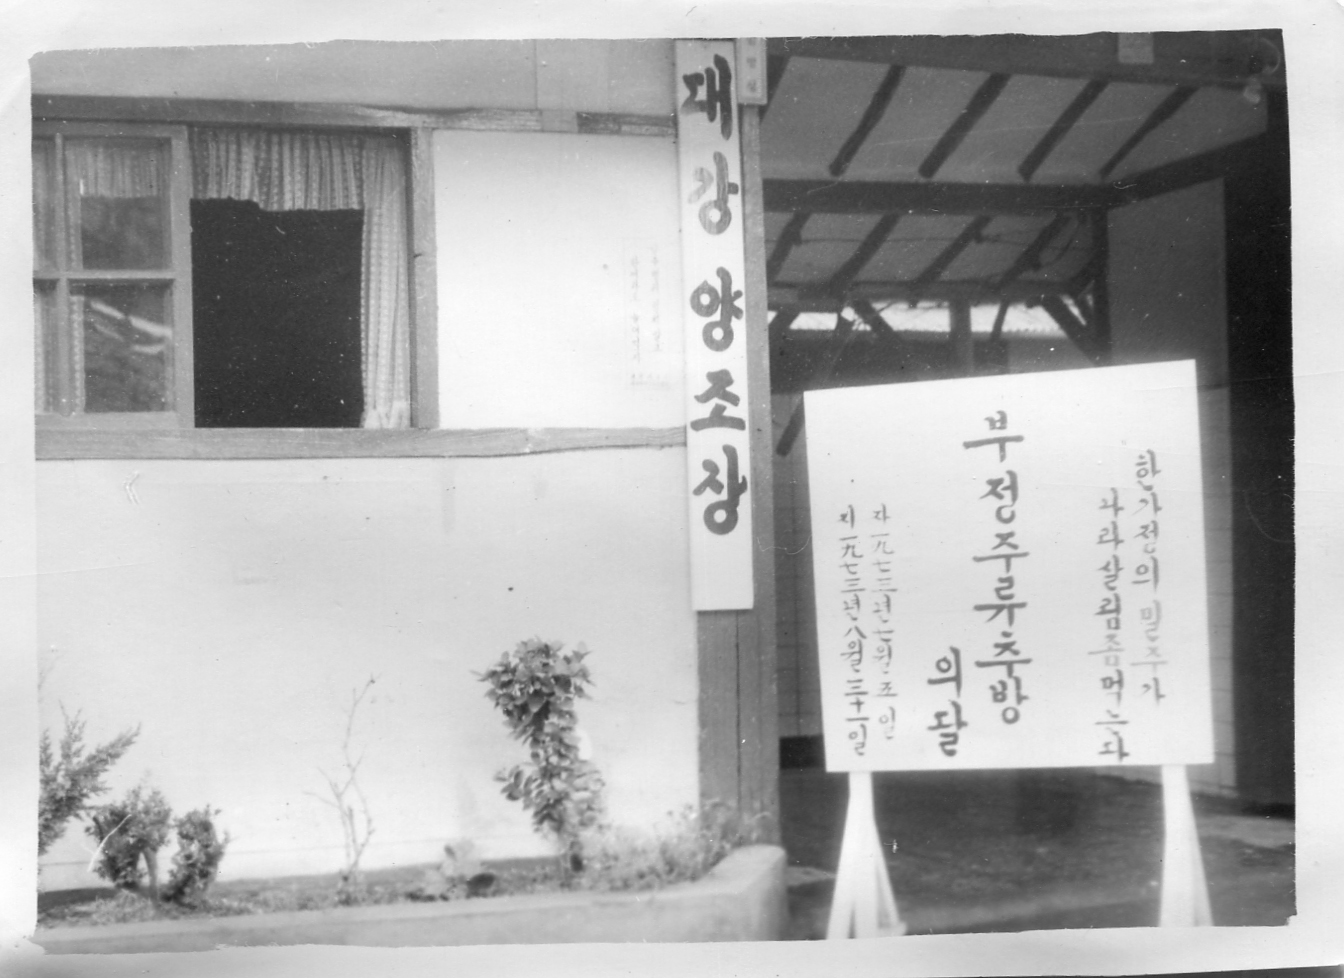 대강 양조장
한 가정의 밀주가
나라살림 좀먹는다
부정주류추방
의 달
자 一九七三년 七월
지 一九七三년 八월 三十一일